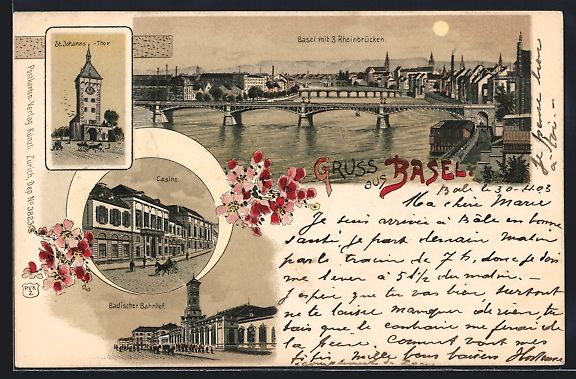 St. Johanns-Thor
Basel mit 3 Rheinbrücken.
Casino.
Badischer Bahnhof.
GRUSS aus BASEL.
Postkarten-Verlag Künzli Zürich, Dep. No 3823
Bâle le 30.4.03
Ma chère Marie
Je suis arrivée à Bâle en bonne
santé, je part demain matin
par le train de 7 h, donc je dois
me lever à 5 ½ du matin.
J'espère que tu vas bien, surtout
ne te laisse manquer de rien, tu
sais que le contraire me ferait de
la peine. Comment vont mes
mille bons baisers